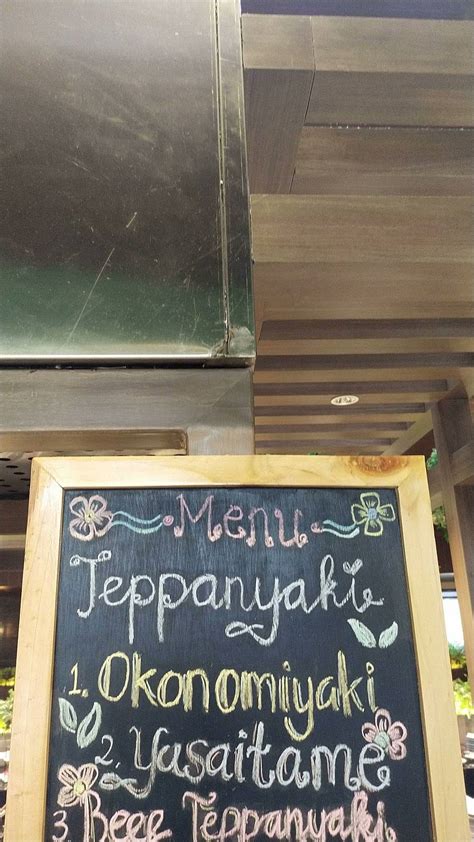 Menu
Teppanyaki
1. Okonomiyaki
2. Yasaitame
3. Beef Teppanyaki